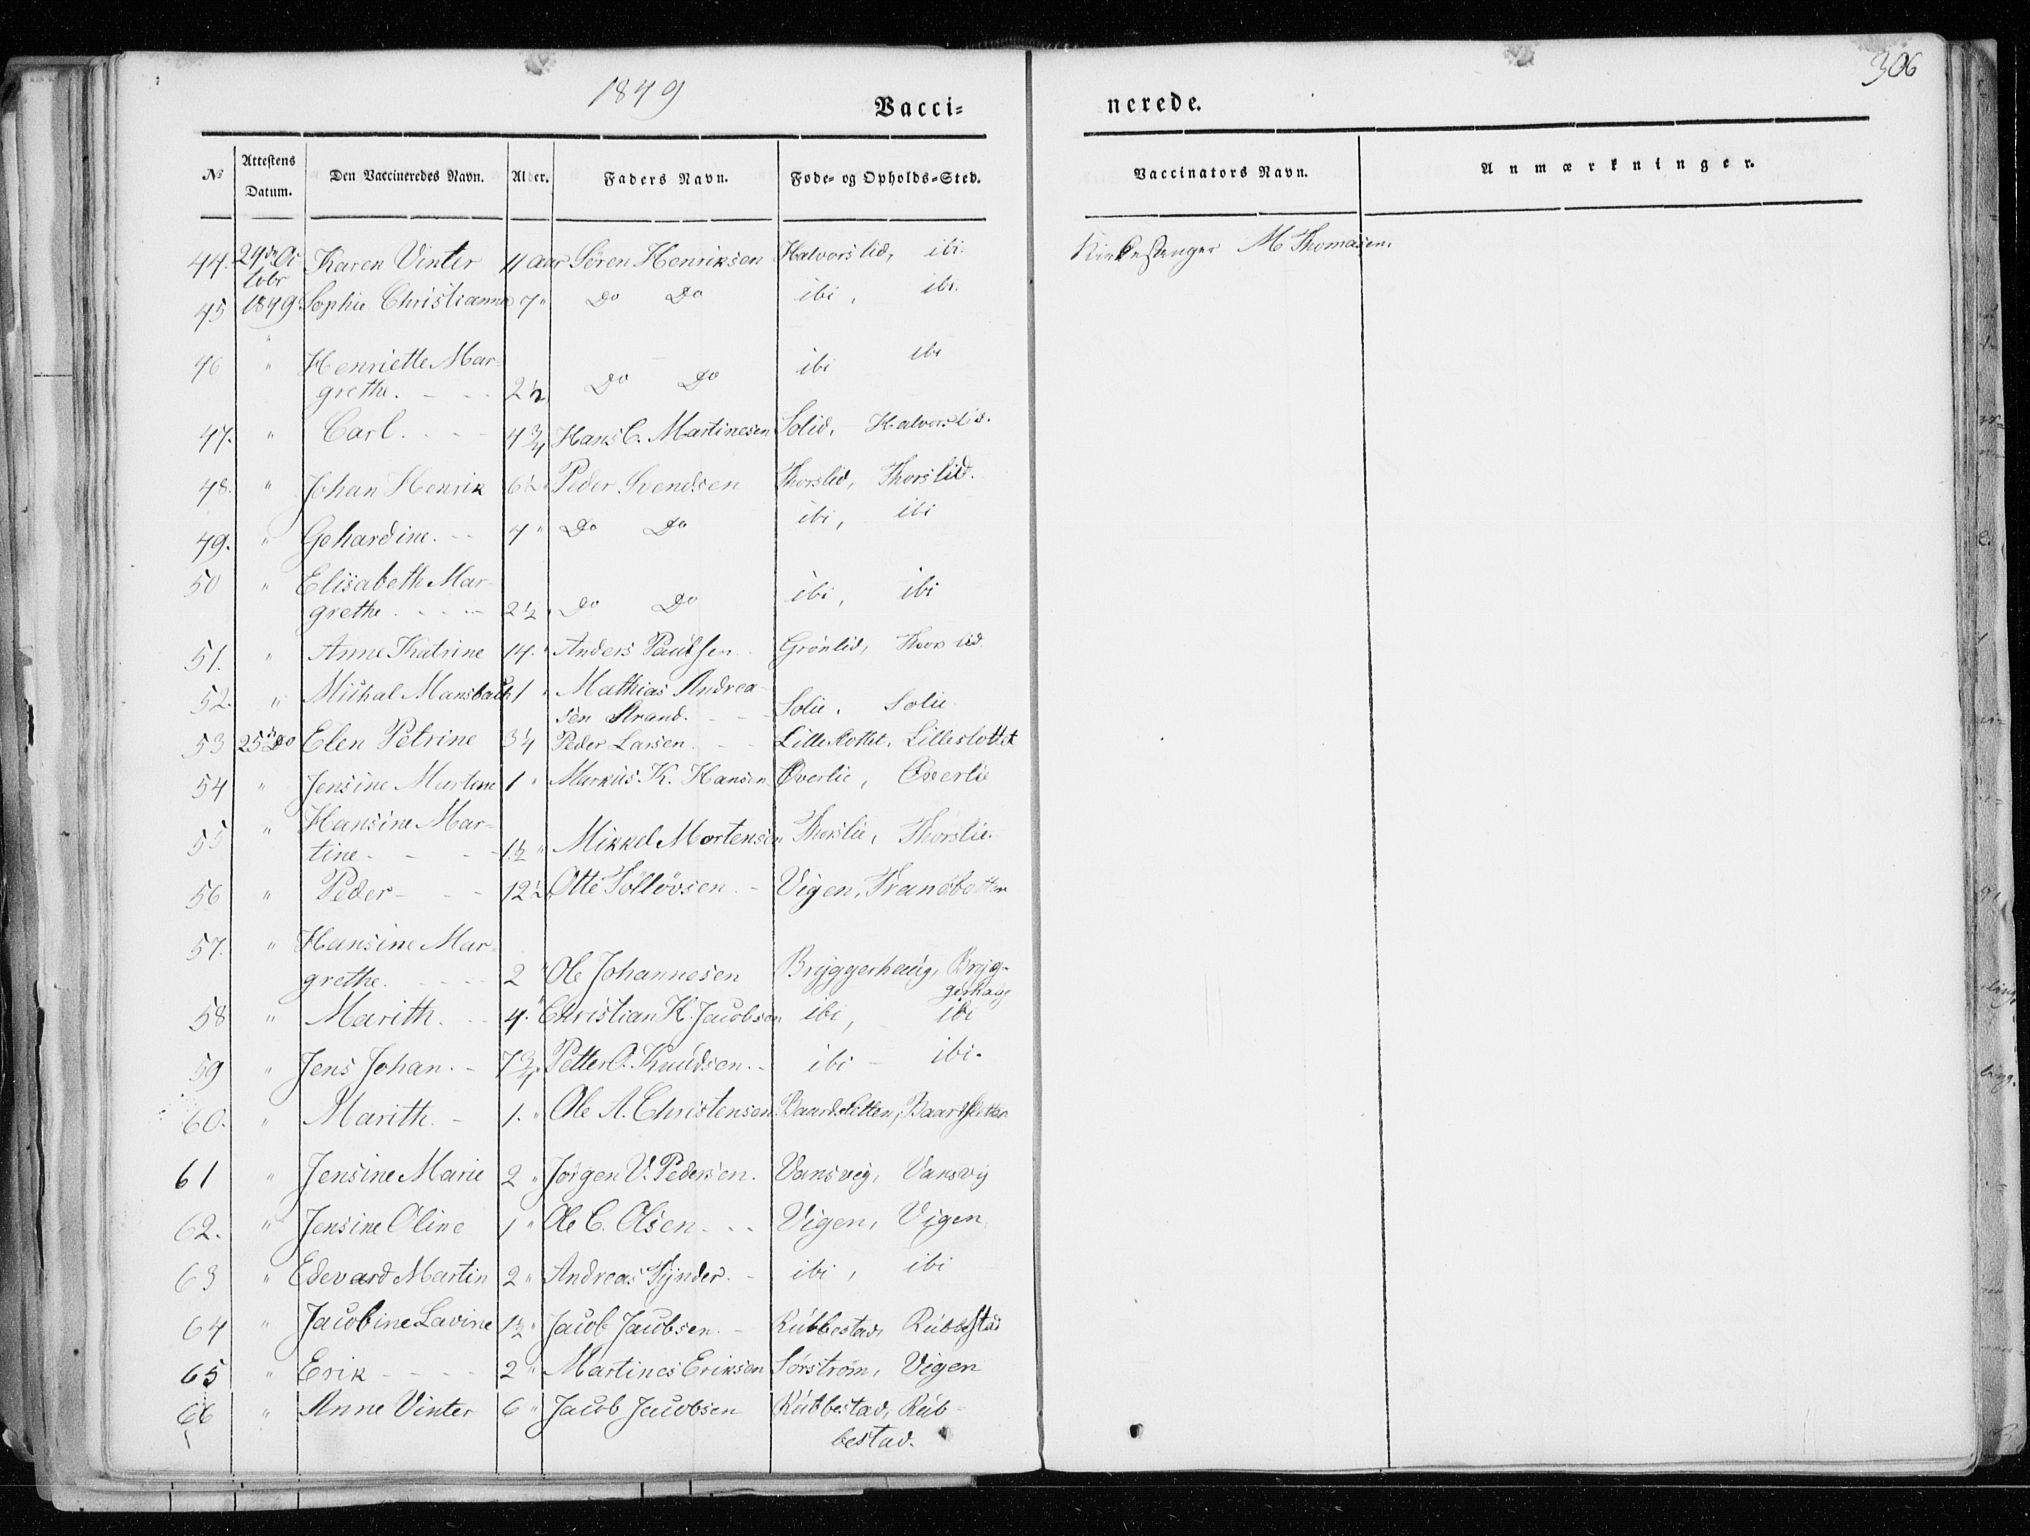 306
1849
Vacci= nerede.
No Attestens Datum. Den Vaccineredes Navn. Alder. Faders Navn. Føde- og Opholds-Sted. Vaccinators Navn. Anmærkninger.
44. 24de Oc Karen Vinter 11 aar Søren Henriksen Halvorslid, ibi. Kirkesanger M Thomasen.
tobr
45 1849 Sophie Christianna 7 " Do Do ibi, ibi.
"
46 " Henriette Mar- ibi ibi
grethe. - - - 2 1/2 Do Do
47. " Carl. - - - 4 3/4 Hans C. Martinesen Solid, Halvorslid.
48. " Johan Henrik 6 1/2 Peder Svendsen Thorslid, Thorslid.
49. " Gehardine. - - 4 " Do Do ibi, ibi
50 " Elisabeth Mar-
grethe. - - - 2 1/2 " Do Do ibi, ibi
51. " Anne Katrine 14. " Anders Paulsen - Grønlid, Thorslid.
52. " Michal Mansbach 1 " Mathias Andrea-
sen Strand. - - Solie. Solie.
53 25de Do Elen Petrine 3 1/4 Peder Larsen. - - Lilleslottet, Lilleslottet
54 " Jensine Martine 1 " Markus K. Hansen Øverlie, Øverlie
55 " Hansine Mar-
tine - - - 1 1/2 " Mikkel Mortensen Thorslie, Thorslie.
56 " Peder - - - 12 1/2 Otte Tølløvsen. - Vigen, Tranøbotten
57. " Hansine Mar-
grethe. - - - 2 " Ole Johannesen Bryggerhaug, Bryg-
gerhaug
58 " Marith. - - 4. " Christian H. Jacobsen ibi, ibi
59 " Jens Johan. - 7 3/4 Petter O. Knudsen. - ibi - ibi.
60. " Marith. - 1. " Ole A. Christensen Baardsletten, Baardsletten
61 " Jensine Marie 2 " Jørgen V. Pedersen. Vansvig, Vansvig
62. " Jensine Oline 1 " Ole C. Olsen. - - Vigen, Vigen.
63 " Edevard Martin 2 " Andreas Tynder. - ibi, ibi
64 " Jacobine Lavine 1 1/2 " Jacob Jacobsen. - Rubbestad, Rubbestad
65 " Erik - - - - 2 " Martines Eriksen Sørstrøm, Vigen
66 " Anne Vinter 6 " Jacob Jacobsen Rubbestad, Rub-
bestad.